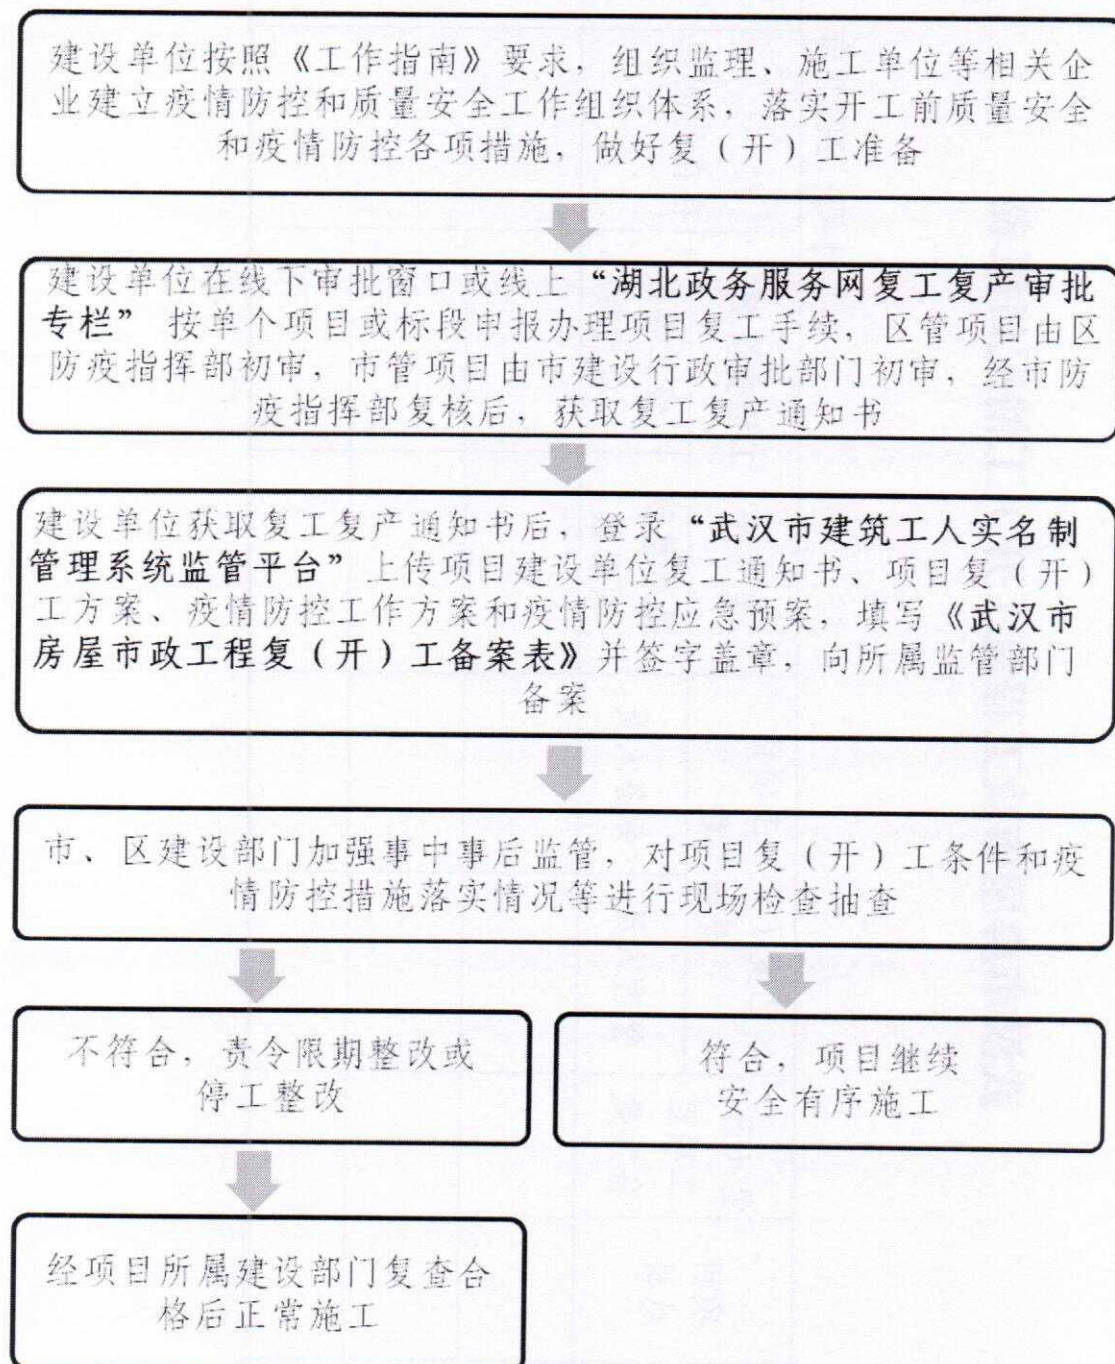 建设单位按照《工作指南》要求，组织监理、施工单位等相关企
业建立疫情防控和质量安全工作组织体系，落实开工前质量安全
和疫情防控各项措施，做好复（开）工准备
建设单位在线下审批窗口或线上“湖北政务服务网复工复产审批
专栏”按单个项目或标段申报办理项目复工手续，区管项目由区
防疫指挥部初审，市管项目由市建设行政审批部门初审，经市防
疫指挥部复核后，获取复工复产通知书
建设单位获取复工复产通知书后，登录“武汉市建筑工人实名制
管理系统监管平台”上传项目建设单位复工通知书、项目复（开）
工方案、疫情防控工作方案和疫情防控应急预案，填写《武汉市
房屋市政工程复（开）工备案表》并签字盖章，向所属监管部门
备案
市、区建设部门加强事中事后监管，对项目复（开）工条件和疫
情防控措施落实情况等进行现场检查抽查
不符合，责令限期整改或
停工整改
符合，项目继续
安全有序施工
经项目所属建设部门复查合
格后正常施工